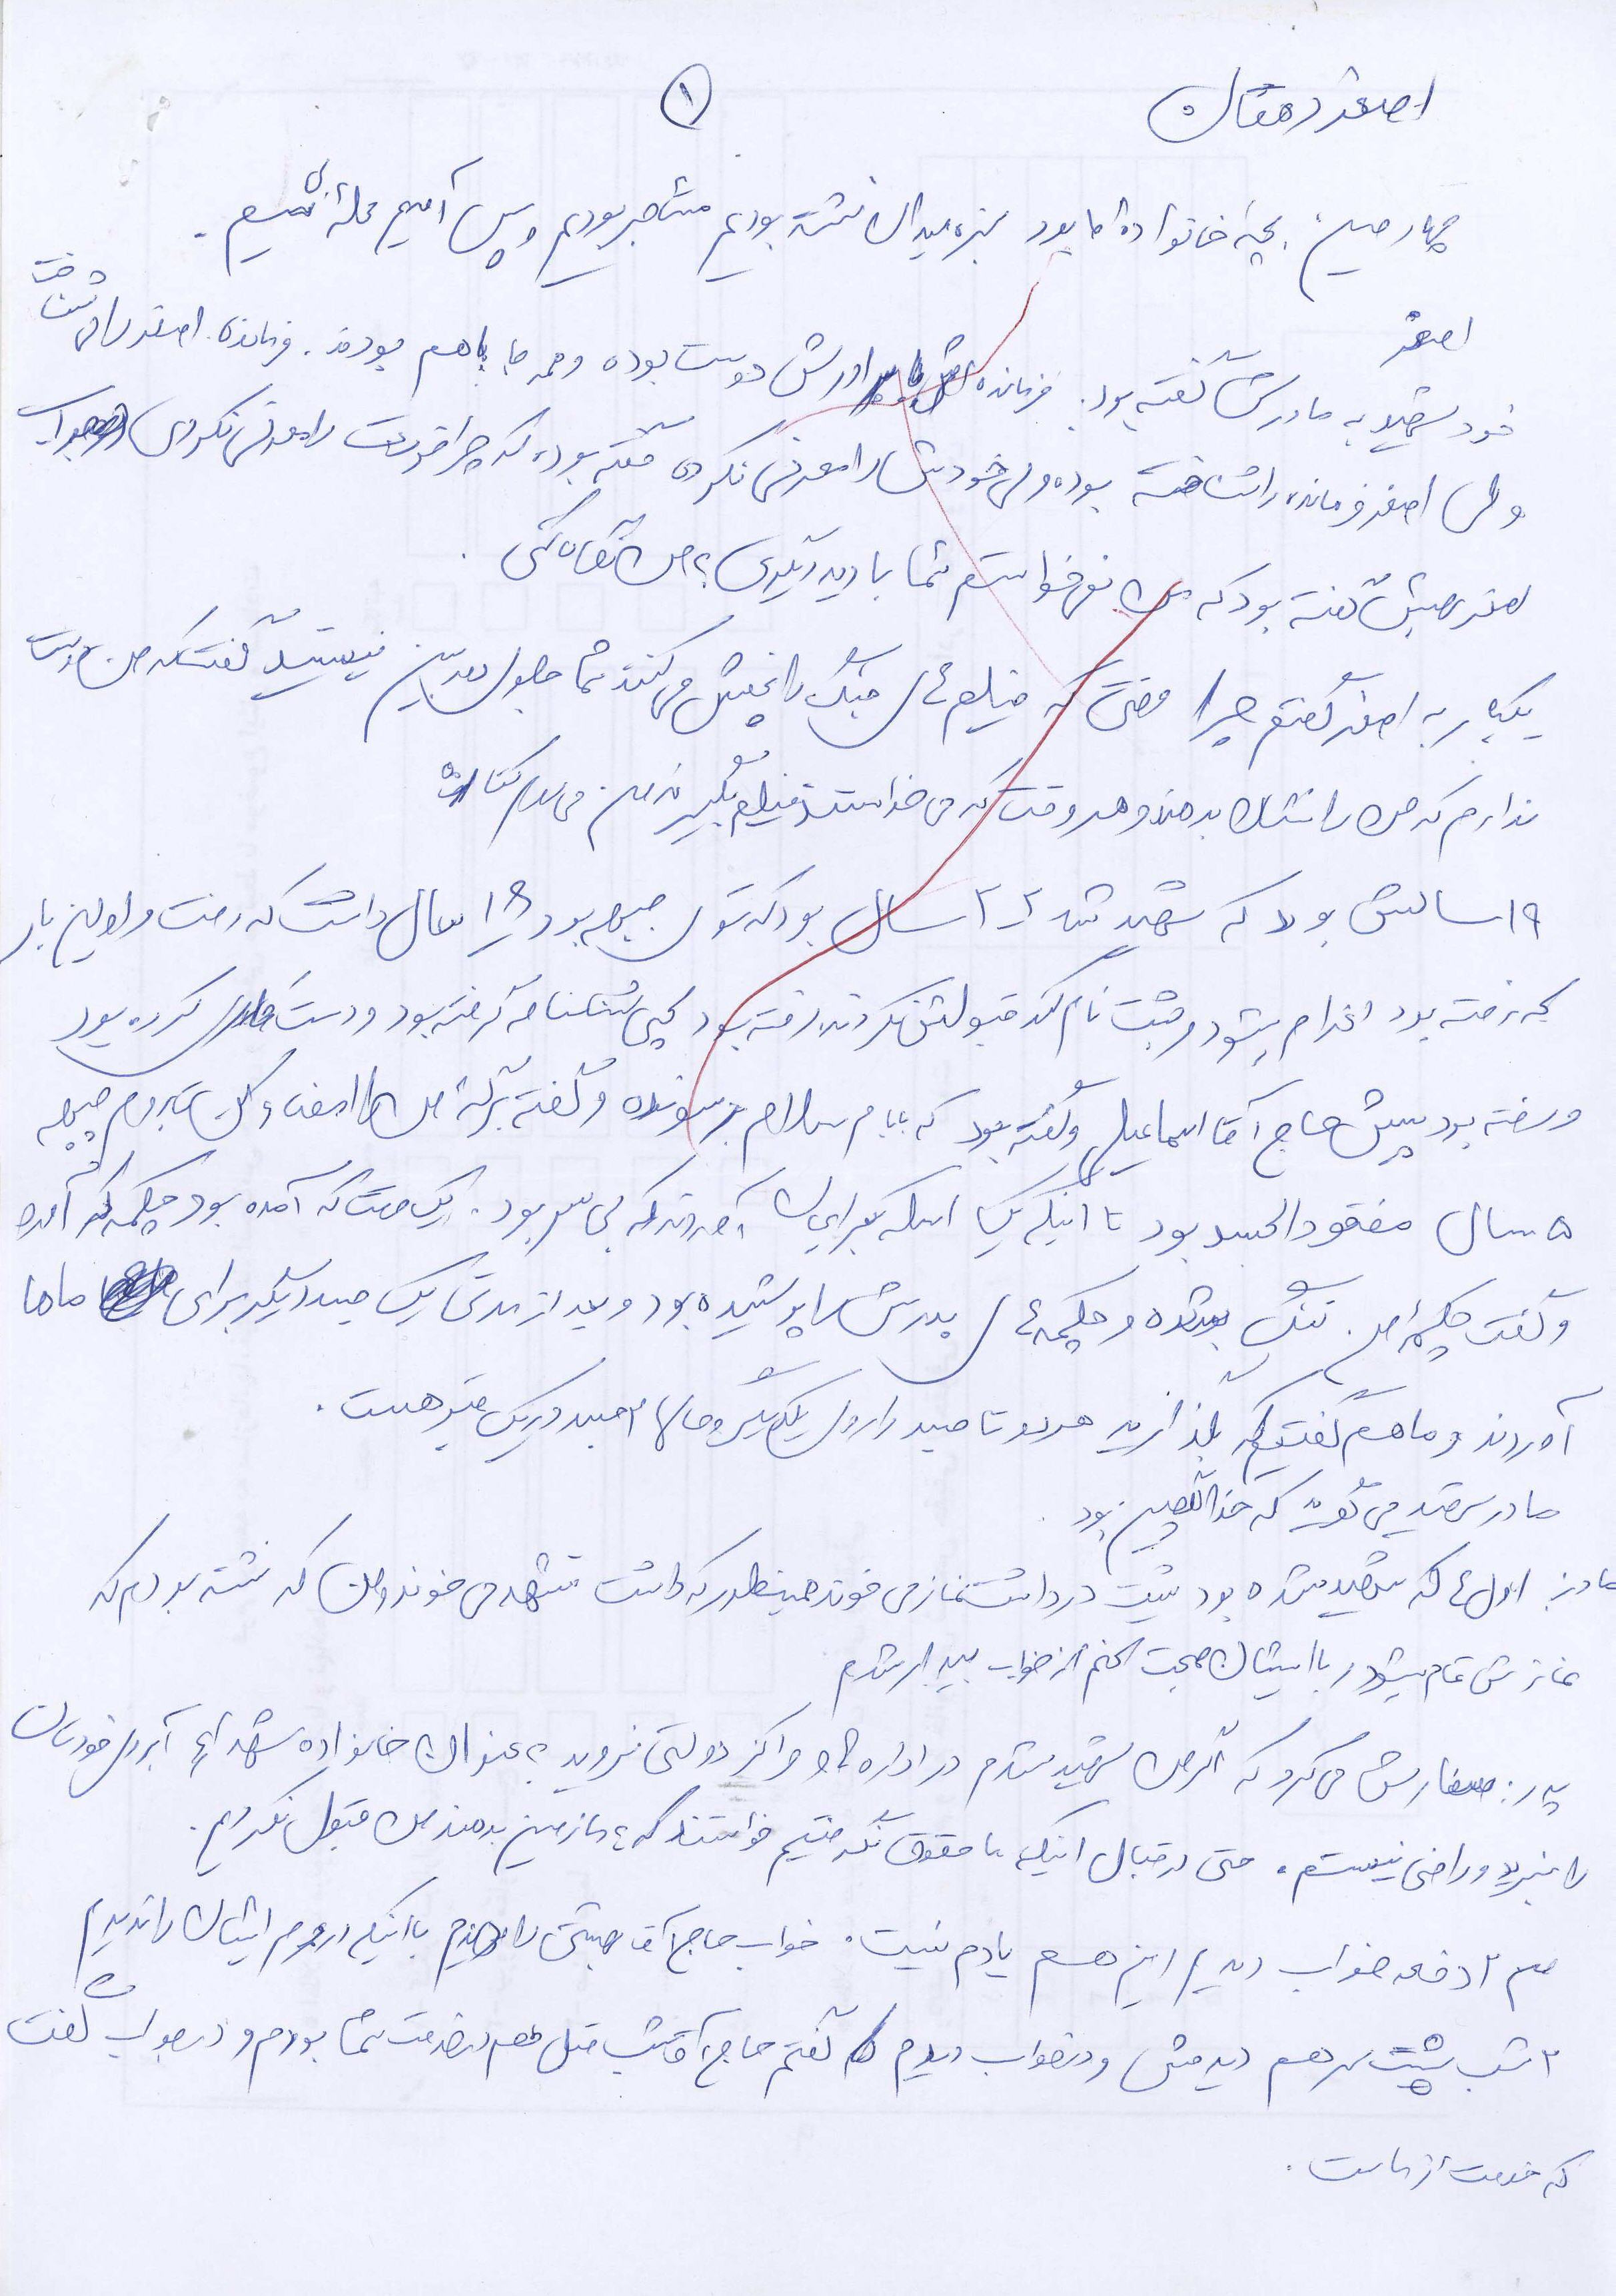 اصغر دهقان
۱
چهارمین بچه خانواده ما بود سبزه میدان نشسته بودیم مستاجر بودیم و پس آمدیم محله
خود شهید به مادرش گفته بود. فرمانده اصغر با برادرش دوست بوده و همه جا با هم بودند. فرمانده اصغر را نمی شناخت
ولی اصغر فرمانده را شناخته بوده ولی خودش را معرفی نکرد گفته بود که چرا خودت را معرفی نکردی
اصغر بهش گفته بود که من نمی خواستم شما با دید دیگری به من نگاه کنی .
یکبار به اصغر گفتم چرا وقتی که فیلم های جنگ را پخش می کنند شما جلوی دوربین نیستید گفت که من دوست
ندارم که من را نشان بدهند و هر وقت که می خواستند فیلم بگیرند من می رم کنار
۱۹ سالش بود که شهید شد ۲ سال بود که توی جبهه بود سال داشت که رفت و اولین بار
که رفته بود اعزام بشود و ثبت نام کند قبولش نکردند رفته بود کپی شناسنامه گرفته بود و دست کاری کرده بود
و رفته بود پیش حاج آقا اسماعیلی و گفته بود که بابام سلام رسونده و گفته برگه من را امضا کن بروم جبهه
۵ سال مفقودالجسد بود تا اینکه یک اسکلت برایمان آوردند که بی سر بود. یک مدت که آمده بود چکمه آمد
و گفت چکمه ام تنگ شده و چکمه های پدرش را پوشیده بود و بعد از مدتی یک جسد دیگر برای ماها
آوردند و ما هم گفتیم که بگذارید هر دو تا جسد را روی یکدیگر و حالا ۲ جسد در یک قبر هست .
مادر شهید می گوید که بود.
مادر: اول که شهید شده بود پشت در داشت نماز می خوند همینطور که داشت تشهد می خوند و من که نشسته بودم که
نمازش تمام بشود و با ایشان صحبت کنم از خواب بیدار شدم
پدر: سفارش می کرد که اگر من شهید شدم در اداره ها و مراکز دولتی نروید به عنوان خانواده شهدا آبروی خودتان
را نبرید و راضی نیستم. حتی در قبال اینکه ما حقوق نگرفتیم خواستند که به ما زمین بدهند من قبول نکردم.
من ۲ دفعه خواب دیدم این هم یادم نیست. خواب حاج آقا بهشتی را دیدم با اینکه ایشان را ندیدم
۲ شب پشت سر هم دیدمش و در خواب دیدم گفتم حاج آقا شب قبل هم در خدمت شما بودم و در جواب گفت
که خدمت از ماست.